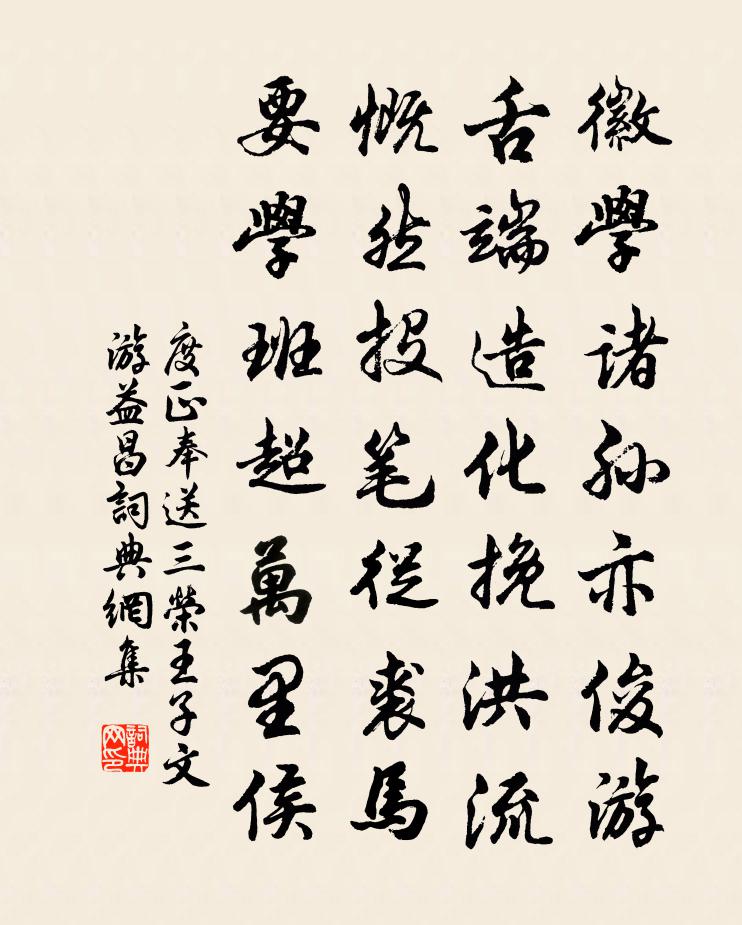 徽學諸孙亦俊游
舌端造化挽洪流
慨然投笔從裘馬
要學班超萬里侯
度正奉送三榮王子文
游益昌詞典網集
詞典网印